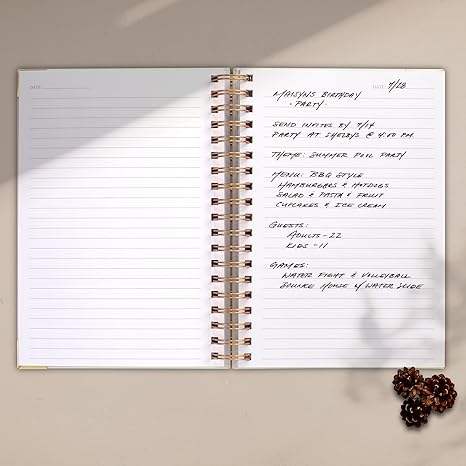 DATE
DATE 7/28
MAISYNS BIRTHDAY
- PARTY -
SEND INVITES BY 7/14
PARTY AT SHELBYS @ 4:00 PM
THEME: SUMMER POOL PARTY
MENU: BBQ STYLE
HAMBURGERS & HOTDOGS
SALAD & PASTA & FRUIT
CUPCAKES & ICE CREAM
GUESTS:
ADULTS - 22
KIDS - 11
GAMES:
WATER FIGHT & VOLLEYBALL
BOUNCE HOUSE W/ WATER SLIDE